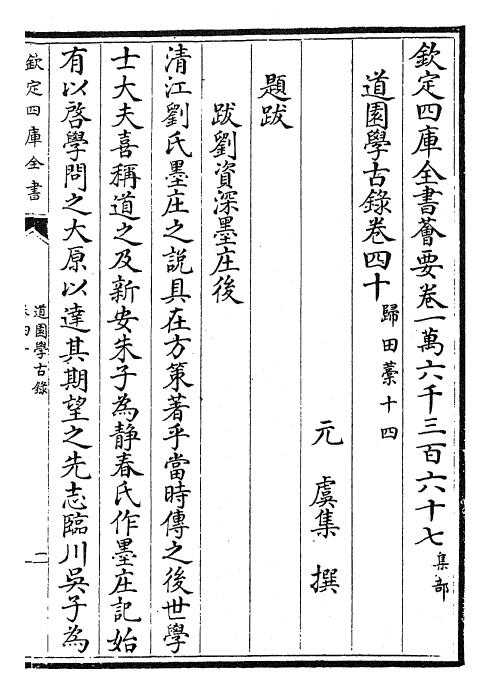 欽定四庫全書薈要卷一萬六千三百六十七 集部
道園學古錄卷四十 歸田藁十四
元 虞集 撰
題跋
跋劉資深墨庄後
清江劉氏墨庄之說具在方策著乎當時傳之後世學
士大夫喜稱道之及新安朱子為靜春氏作墨庄記始
有以啓學問之大原以達其期望之先志臨川吳子為
欽定四庫全書
道園學古錄
卷四十
二